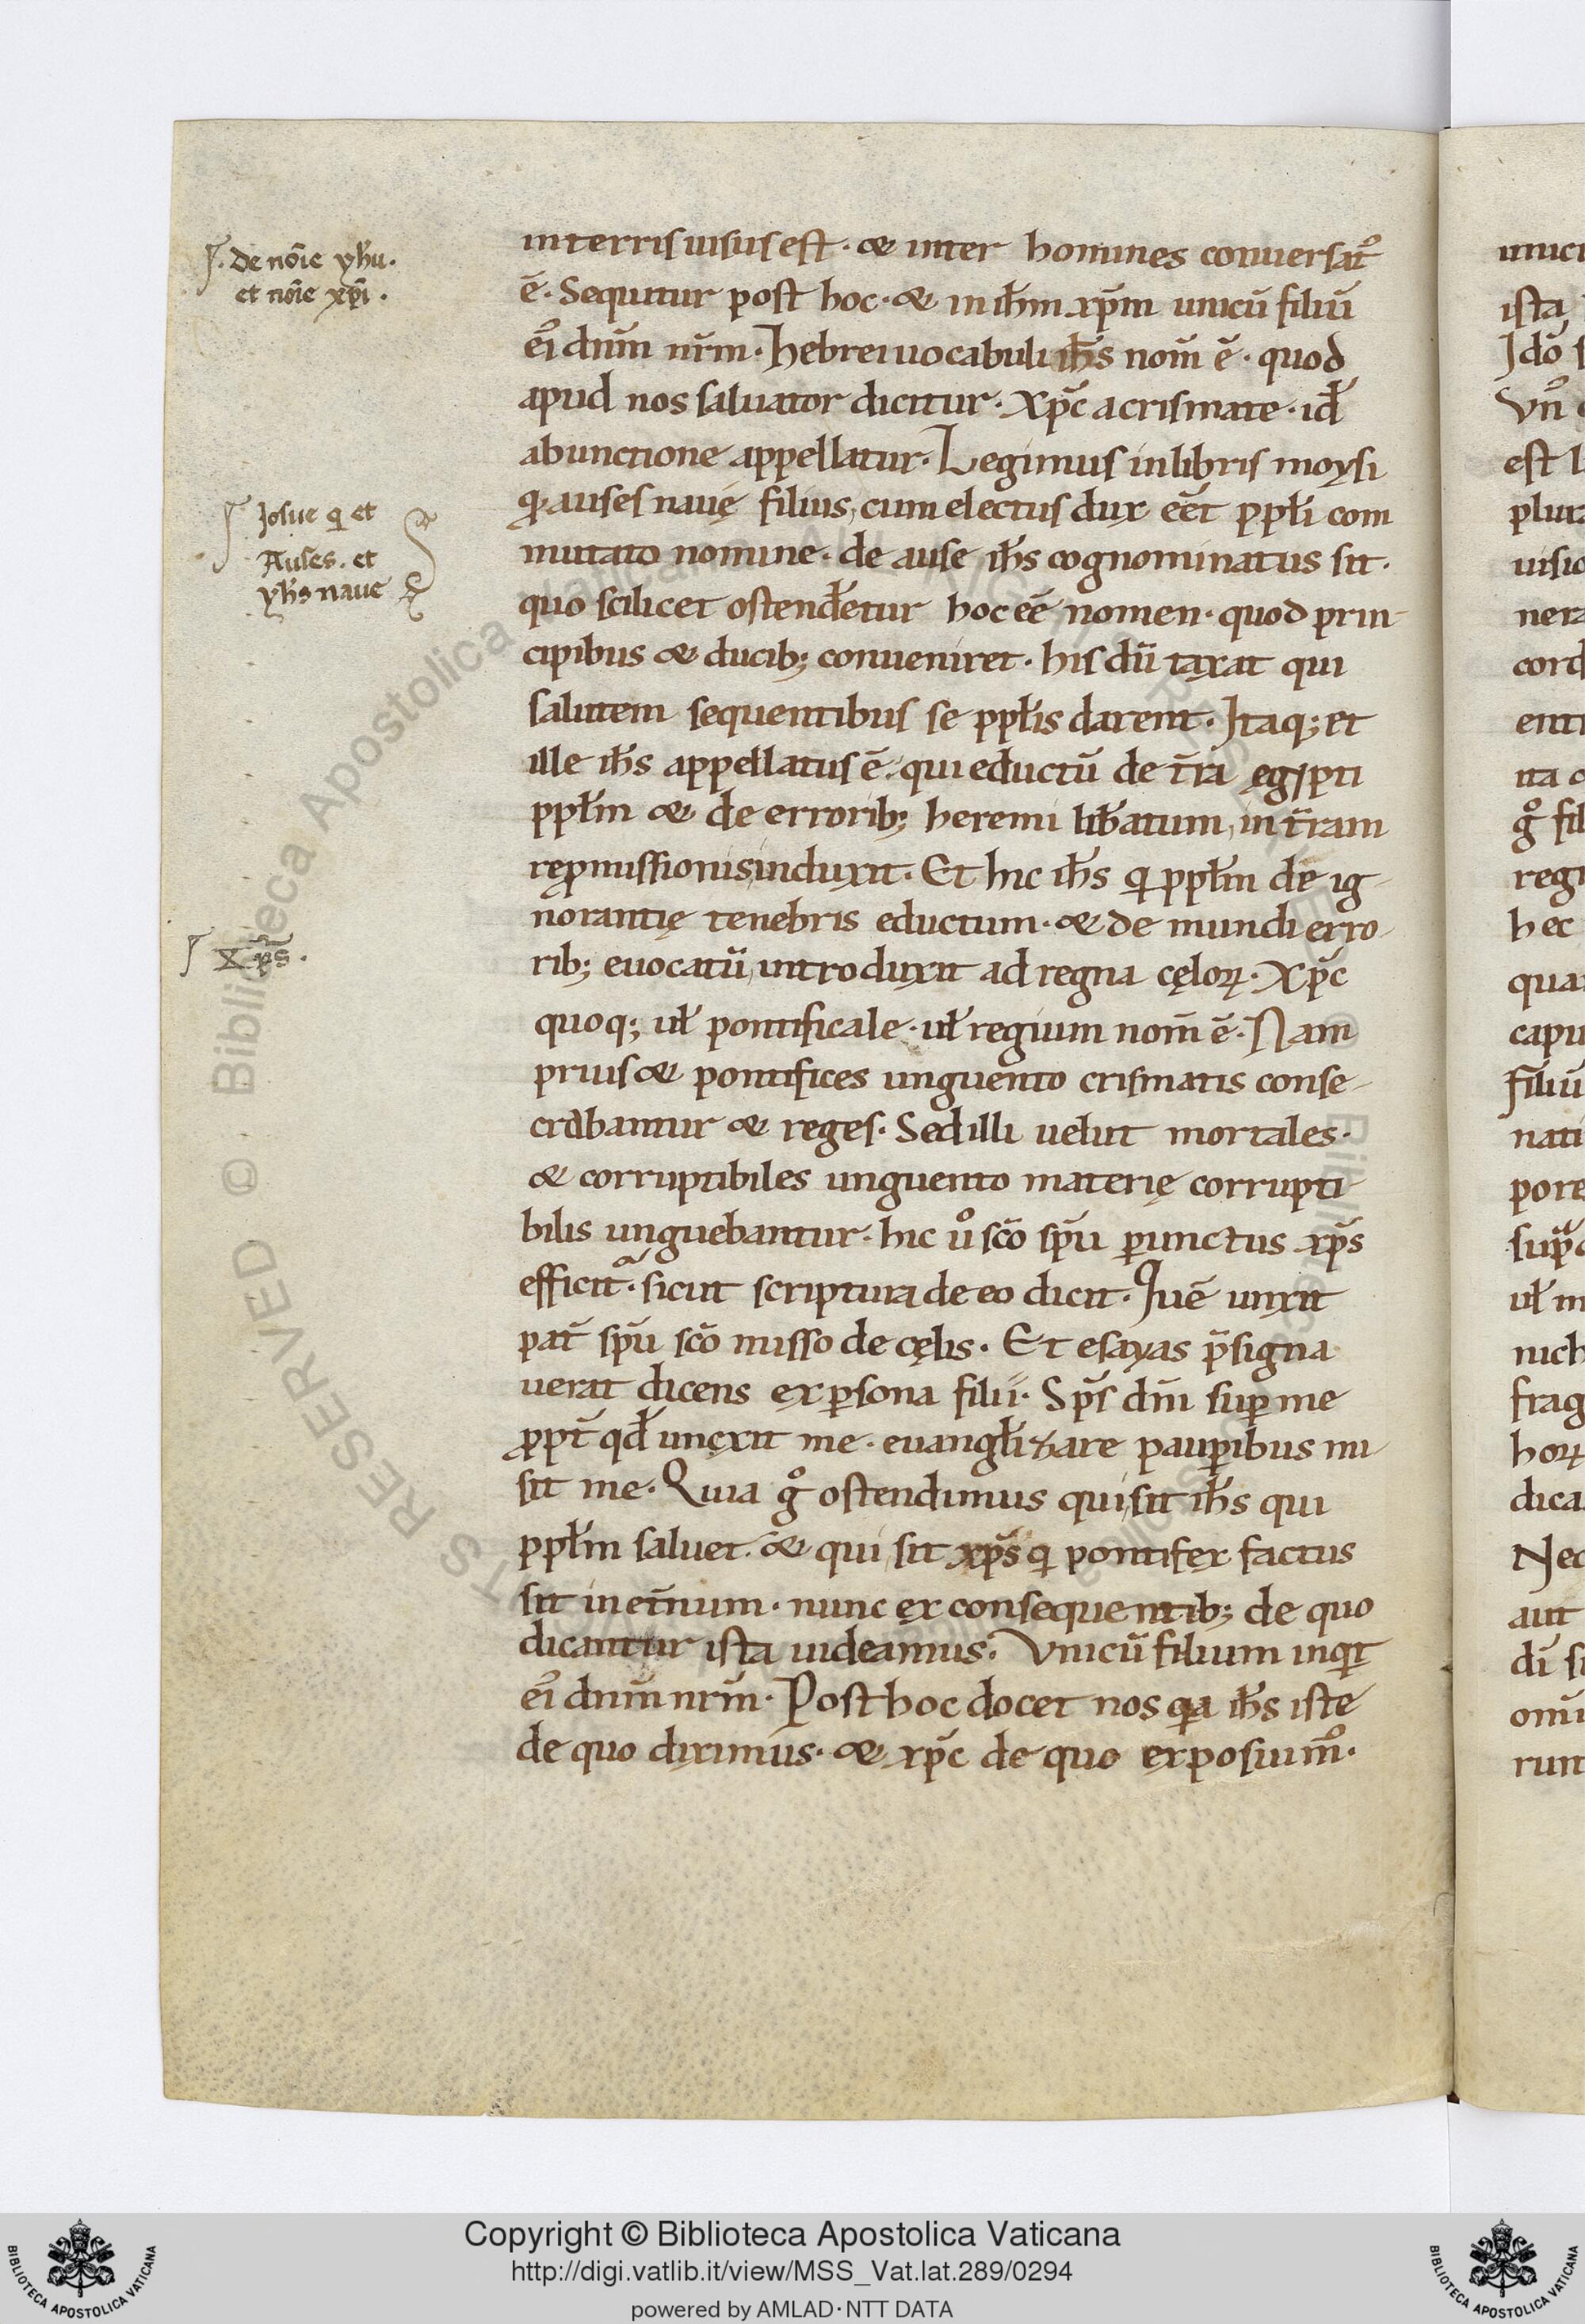 ſ. de nōie yħu.
et nōie xp̄i.
in terris uisus est. & inter homines conuersat᷒
ē. Sequitur post hoc. & in iħm xp̄m unicū filiū
ei᷒ dn̄m nr̄m. Hebrei uocabuli iħs nom̄ ē. quod
apud nos saluator dicitur. Xp̄c a crismate. id̄
ab unctione appellatur. Legimus in libris moysi
ꝙ auses nauę filius, cum electus dux eēt ppłi com
mutato nomine. de ause iħs cognominatus sit.
quo scilicet ostenderetur hoc eē nomen. quod prin-
cipibus & ducib; conueniret. his dū taxat qui
salutem sequentibus se ppłis darent. Itaq; et
ille iħs appellatus ē. qui eductū de t̄ra ęgypti
ppłm & de errorib; heremi liƀatum, in t̄ram
rep̱missionis induxit. Et hic iħs q̇ ppłm de ig-
norantię tenebris eductum. & de mundi erro-
rib; euocatū, introduxit ad regna cęloꝝ. Xp̄c
quoq; uł pontificale. uł regium nom̄ ē. Nam
prius & pontifices unguento crismatis conse-
crabantur & reges. Sed illi uelut mortales.
& corruptibiles unguento materię corrupti-
bilis unguebantur. hic ůo sc̄o sp̄u ꝑunctus xp̄s
efficit᷒. sicut scriptura de eo dicit. Quē unxit
pat̄ sp̄u sc̄o misso de cęlis. Et esayas p̄signa
uerat dicens ex ꝑsona filii. Sp̄s dn̄i suꝑ me
ꝓpt̄ qd̄ unxit me. euangłizare pauꝑibus mi-
sit me. Quia gͦ ostendimus qui sit iħs qui
ppłm saluet. & qui sit xp̄s q̇ pontifex factus
sit in et̄num. nunc ex consequentib; de quo
dicantur ista uideamus. Vnicū filium inqͥt
ei᷒ dn̄m nr̄m. Post hoc docet nos qa iħs iste
de quo diximus. & xp̄c de quo exposuim᷒.
Iosue q̇ et
Auses. et
yħs naue
ſ Xp̄s.
Copyright © Biblioteca Apostolica Vaticana
http://digi.vatlib.it/view/MSS_Vat.lat.289/0294
powered by AMLAD·NTT DATA
BIBLIOTECA APOSTOLICA VATICANA
BIBLIOTECA APOSTOLICA VATICANA